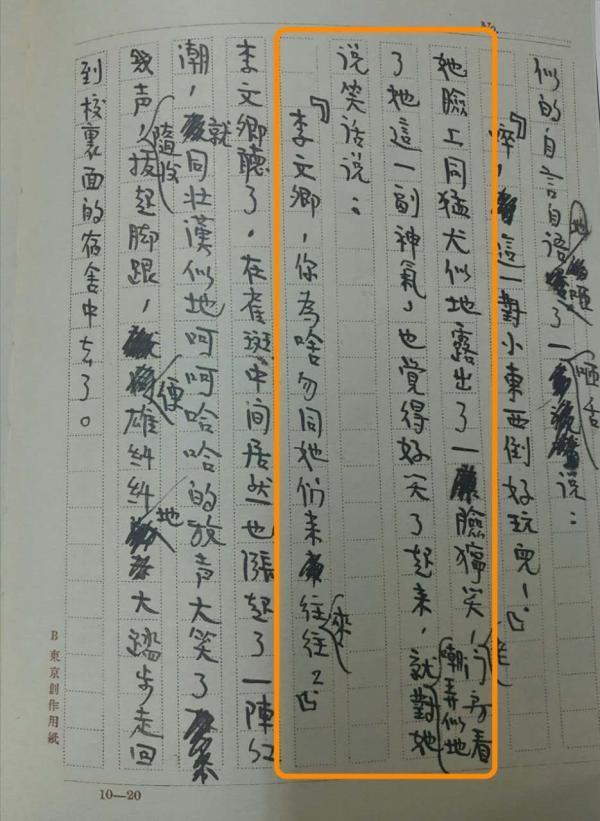 似的自言自语地了一说：
咂舌
『啐，這一對小東西倒好玩兒！』
她臉上同猛犬似地露出了一臉獰笑，门房看
了她這一副神氣，也覺得好笑了起来，就對她
嘲弄似地
说笑话说：
『李文卿，你為啥勿同她们来來往往？』
李文卿聽了，在雀斑中间居然也漲起了一陣红
潮，就同壮漢似地呵呵哈哈的放声大笑了
几声，隨後拔起脚跟，便雄纠纠地大踏步走回
到校裏面的宿舍中去了。
B 東京創作用紙
10—20